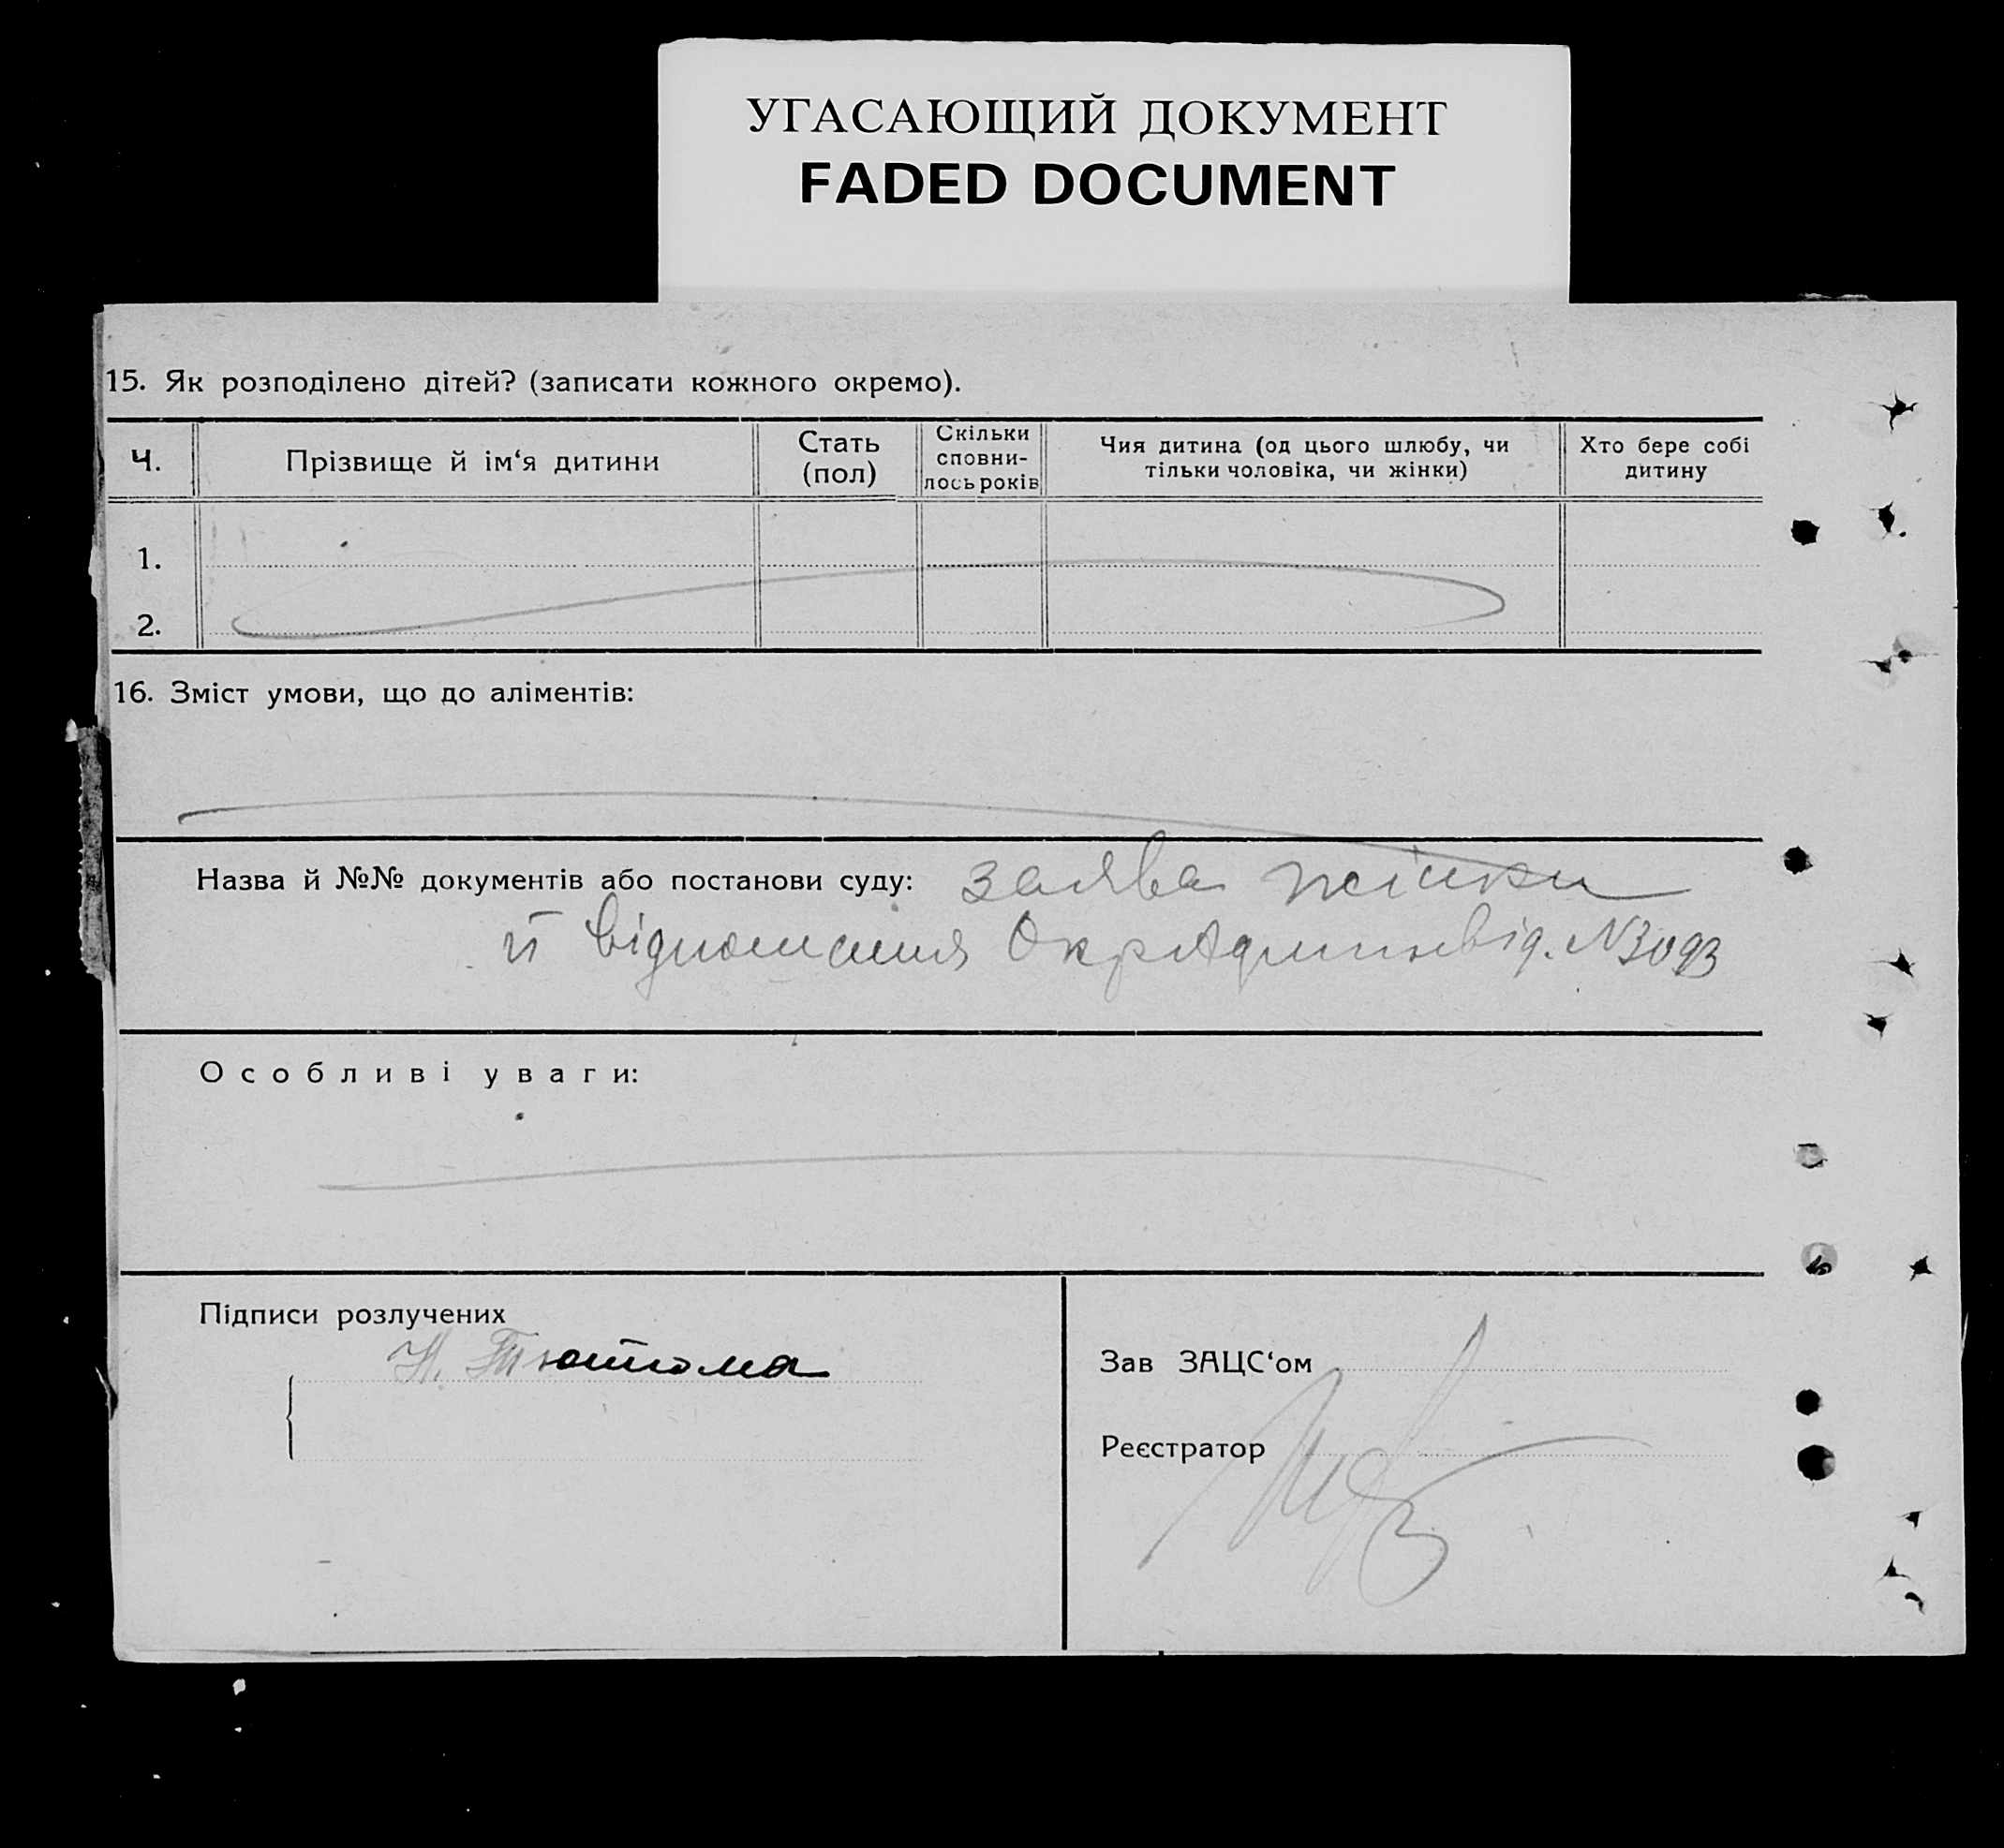 УГАСАЮЩИЙ ДОКУМЕНТ
FADED DOCUMENT
15. Як розподілено дітей? (записати кожного окремо).
Ч. Прізвище й ім‘я дитини Стать (пол) Скільки сповни-лось років Чия дитина (од цього шлюбу, чи тільки чоловіка, чи жінки) Хто бере собі дитину
1.
2.
16. Зміст умови, що до аліментів:
Назва й №№ документів або постанови суду: заява жінки
й відношення ОкрАдмінвід. N3093
Особливі уваги:
Підписи розлучених
Н.
Зав ЗАЦС‘ом
Реєстратор